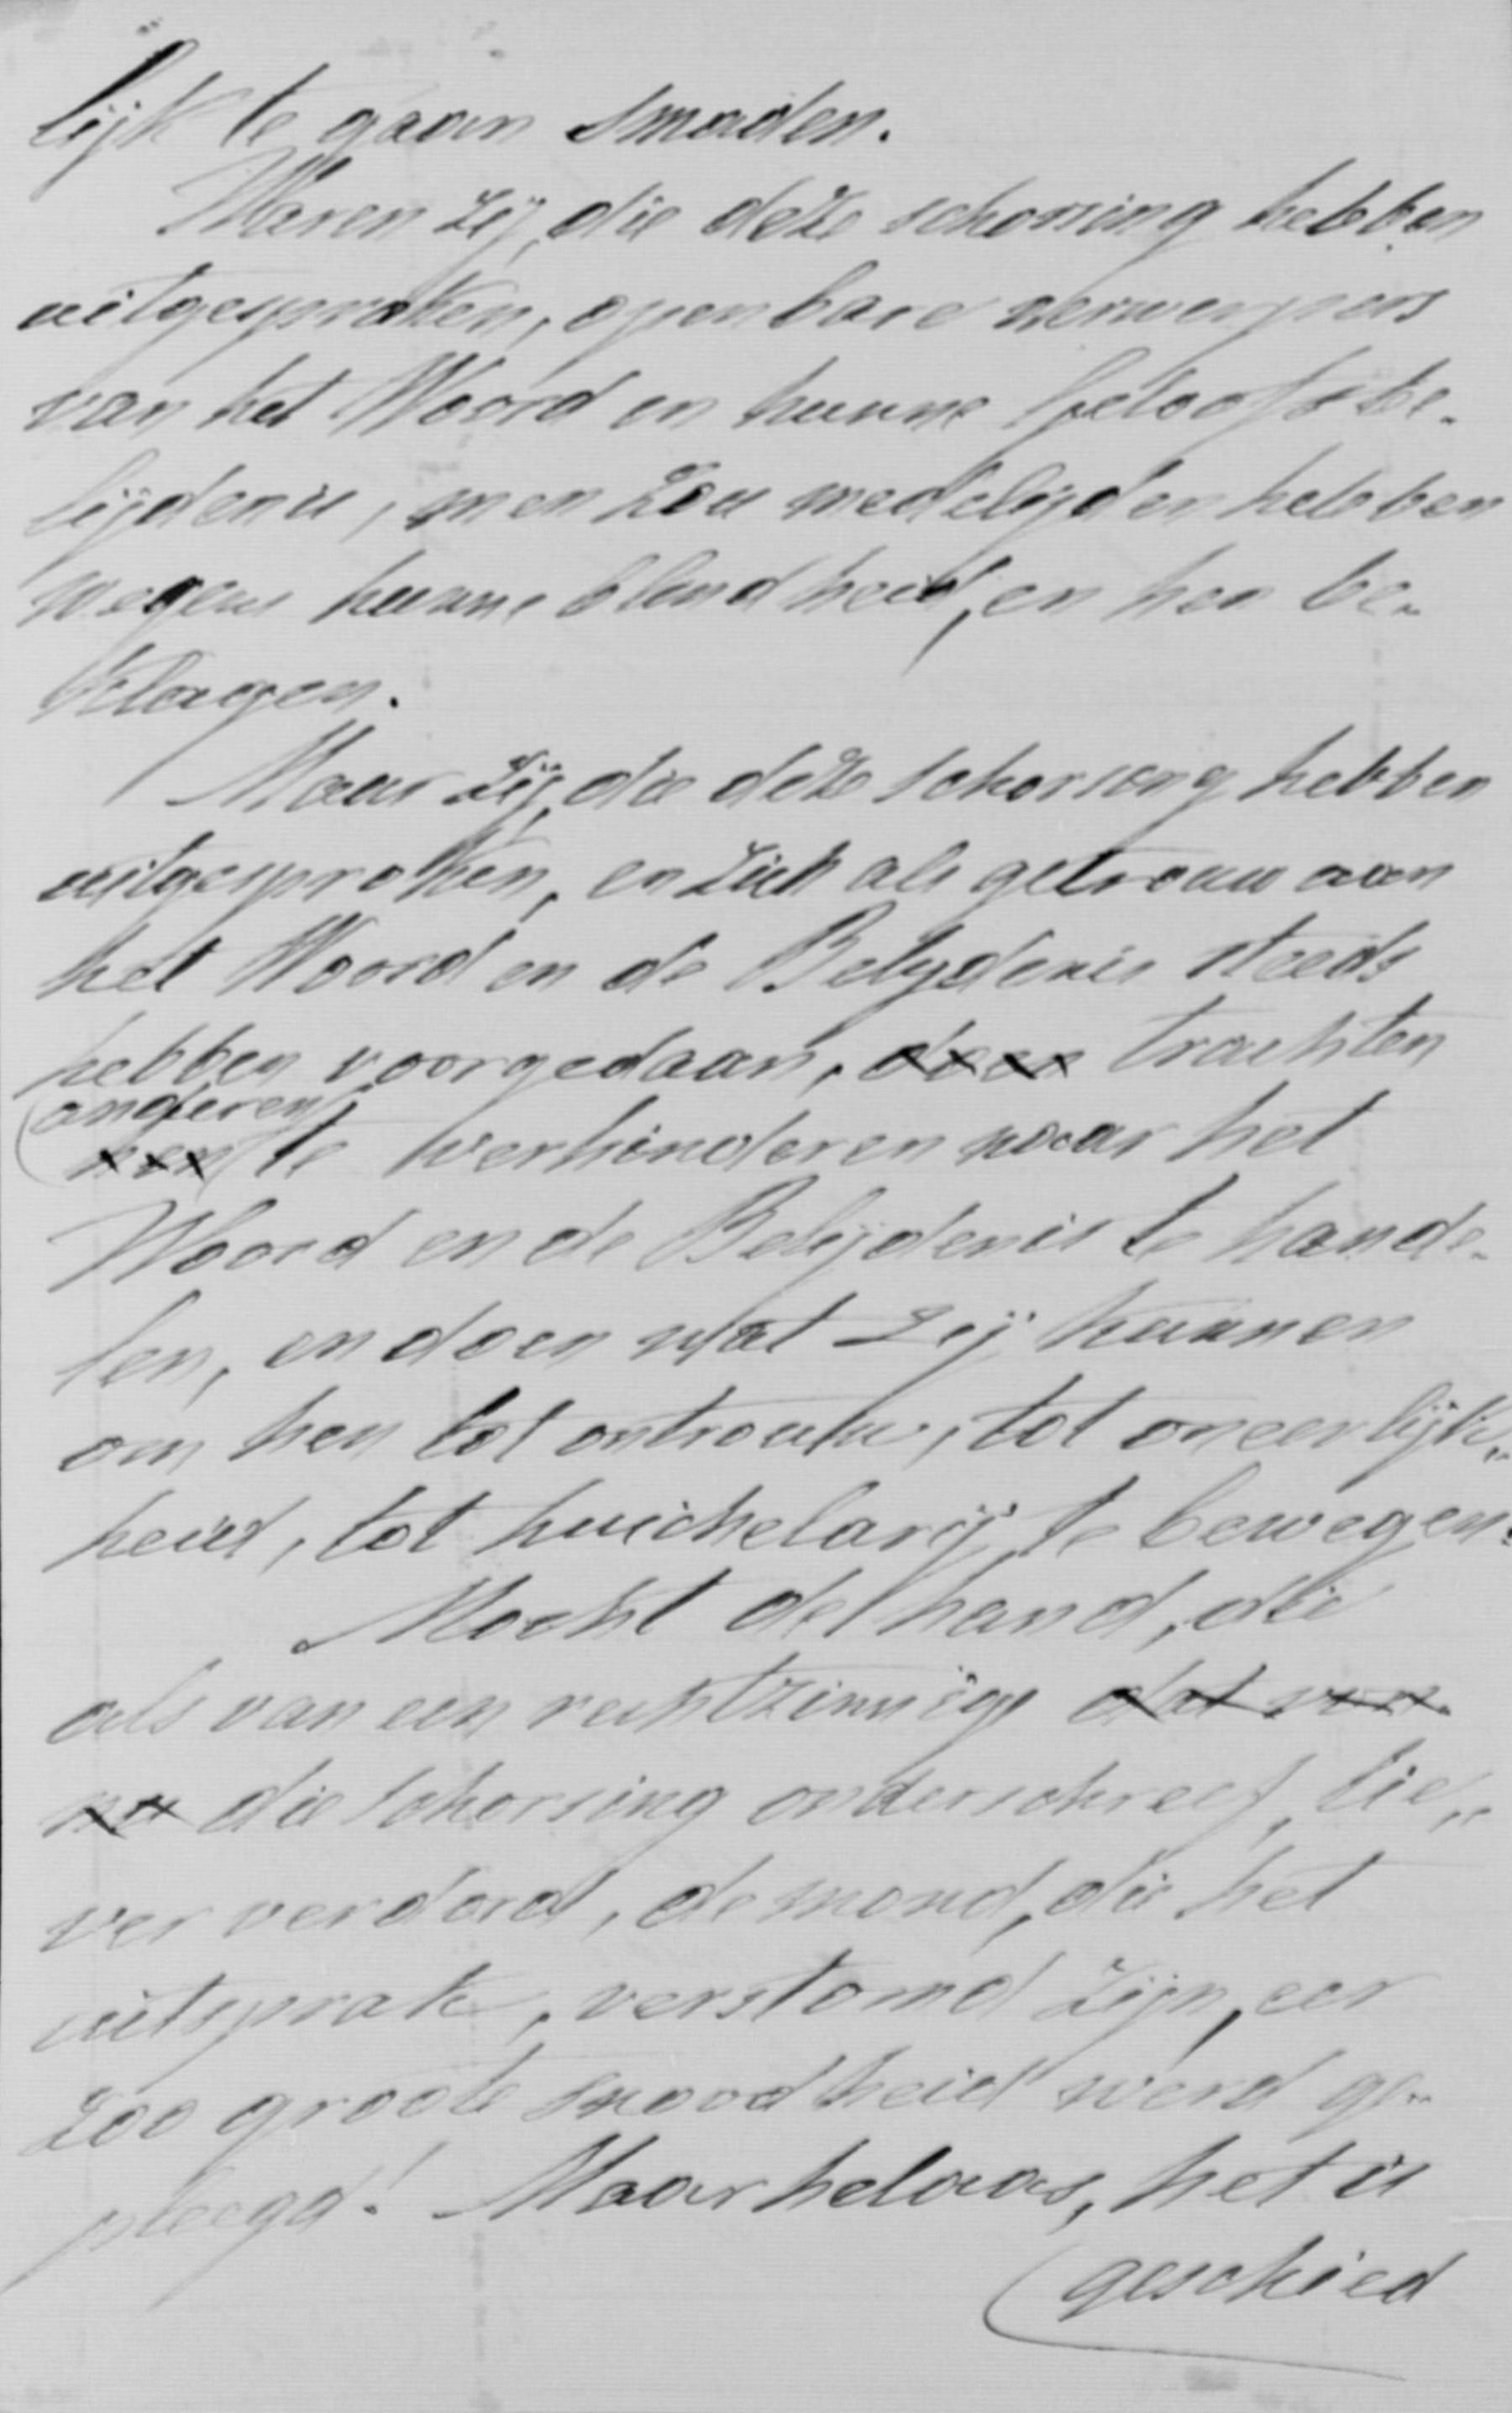 lijk te gaan smaden.
Waren zij, die deze schorsing hebben
uitgesproken, openbare verwerpers
van het Woord en hunne geloofsbe-
lijdenis, men zou medelijden hebben
wegens hunne blindheid, en hen be-
klagen.
Maar zij, die deze schorsing hebben
uitgesproken, en zich als getrouw aan
het Woord en de Belijdenis steeds
hebben voorgedaan, doen trachten
anderen
hen te verhinderen naar het
Woord en de Belijdenis te hande-
len, en doen wat zij kunnen
om hen tot ontrouw, tot oneerlijk-
heid, tot huichelarij te bewegen.
Mocht de hand, die
als van een rechtzinnige dat von
nu die schorsing onderschreef, lie-
ver verdord, de mond, die het
uitsprak, verstomd zijn, eer
zoo groote snoodheid werd ge-
pleegd! Maar helaas, het is
geschied